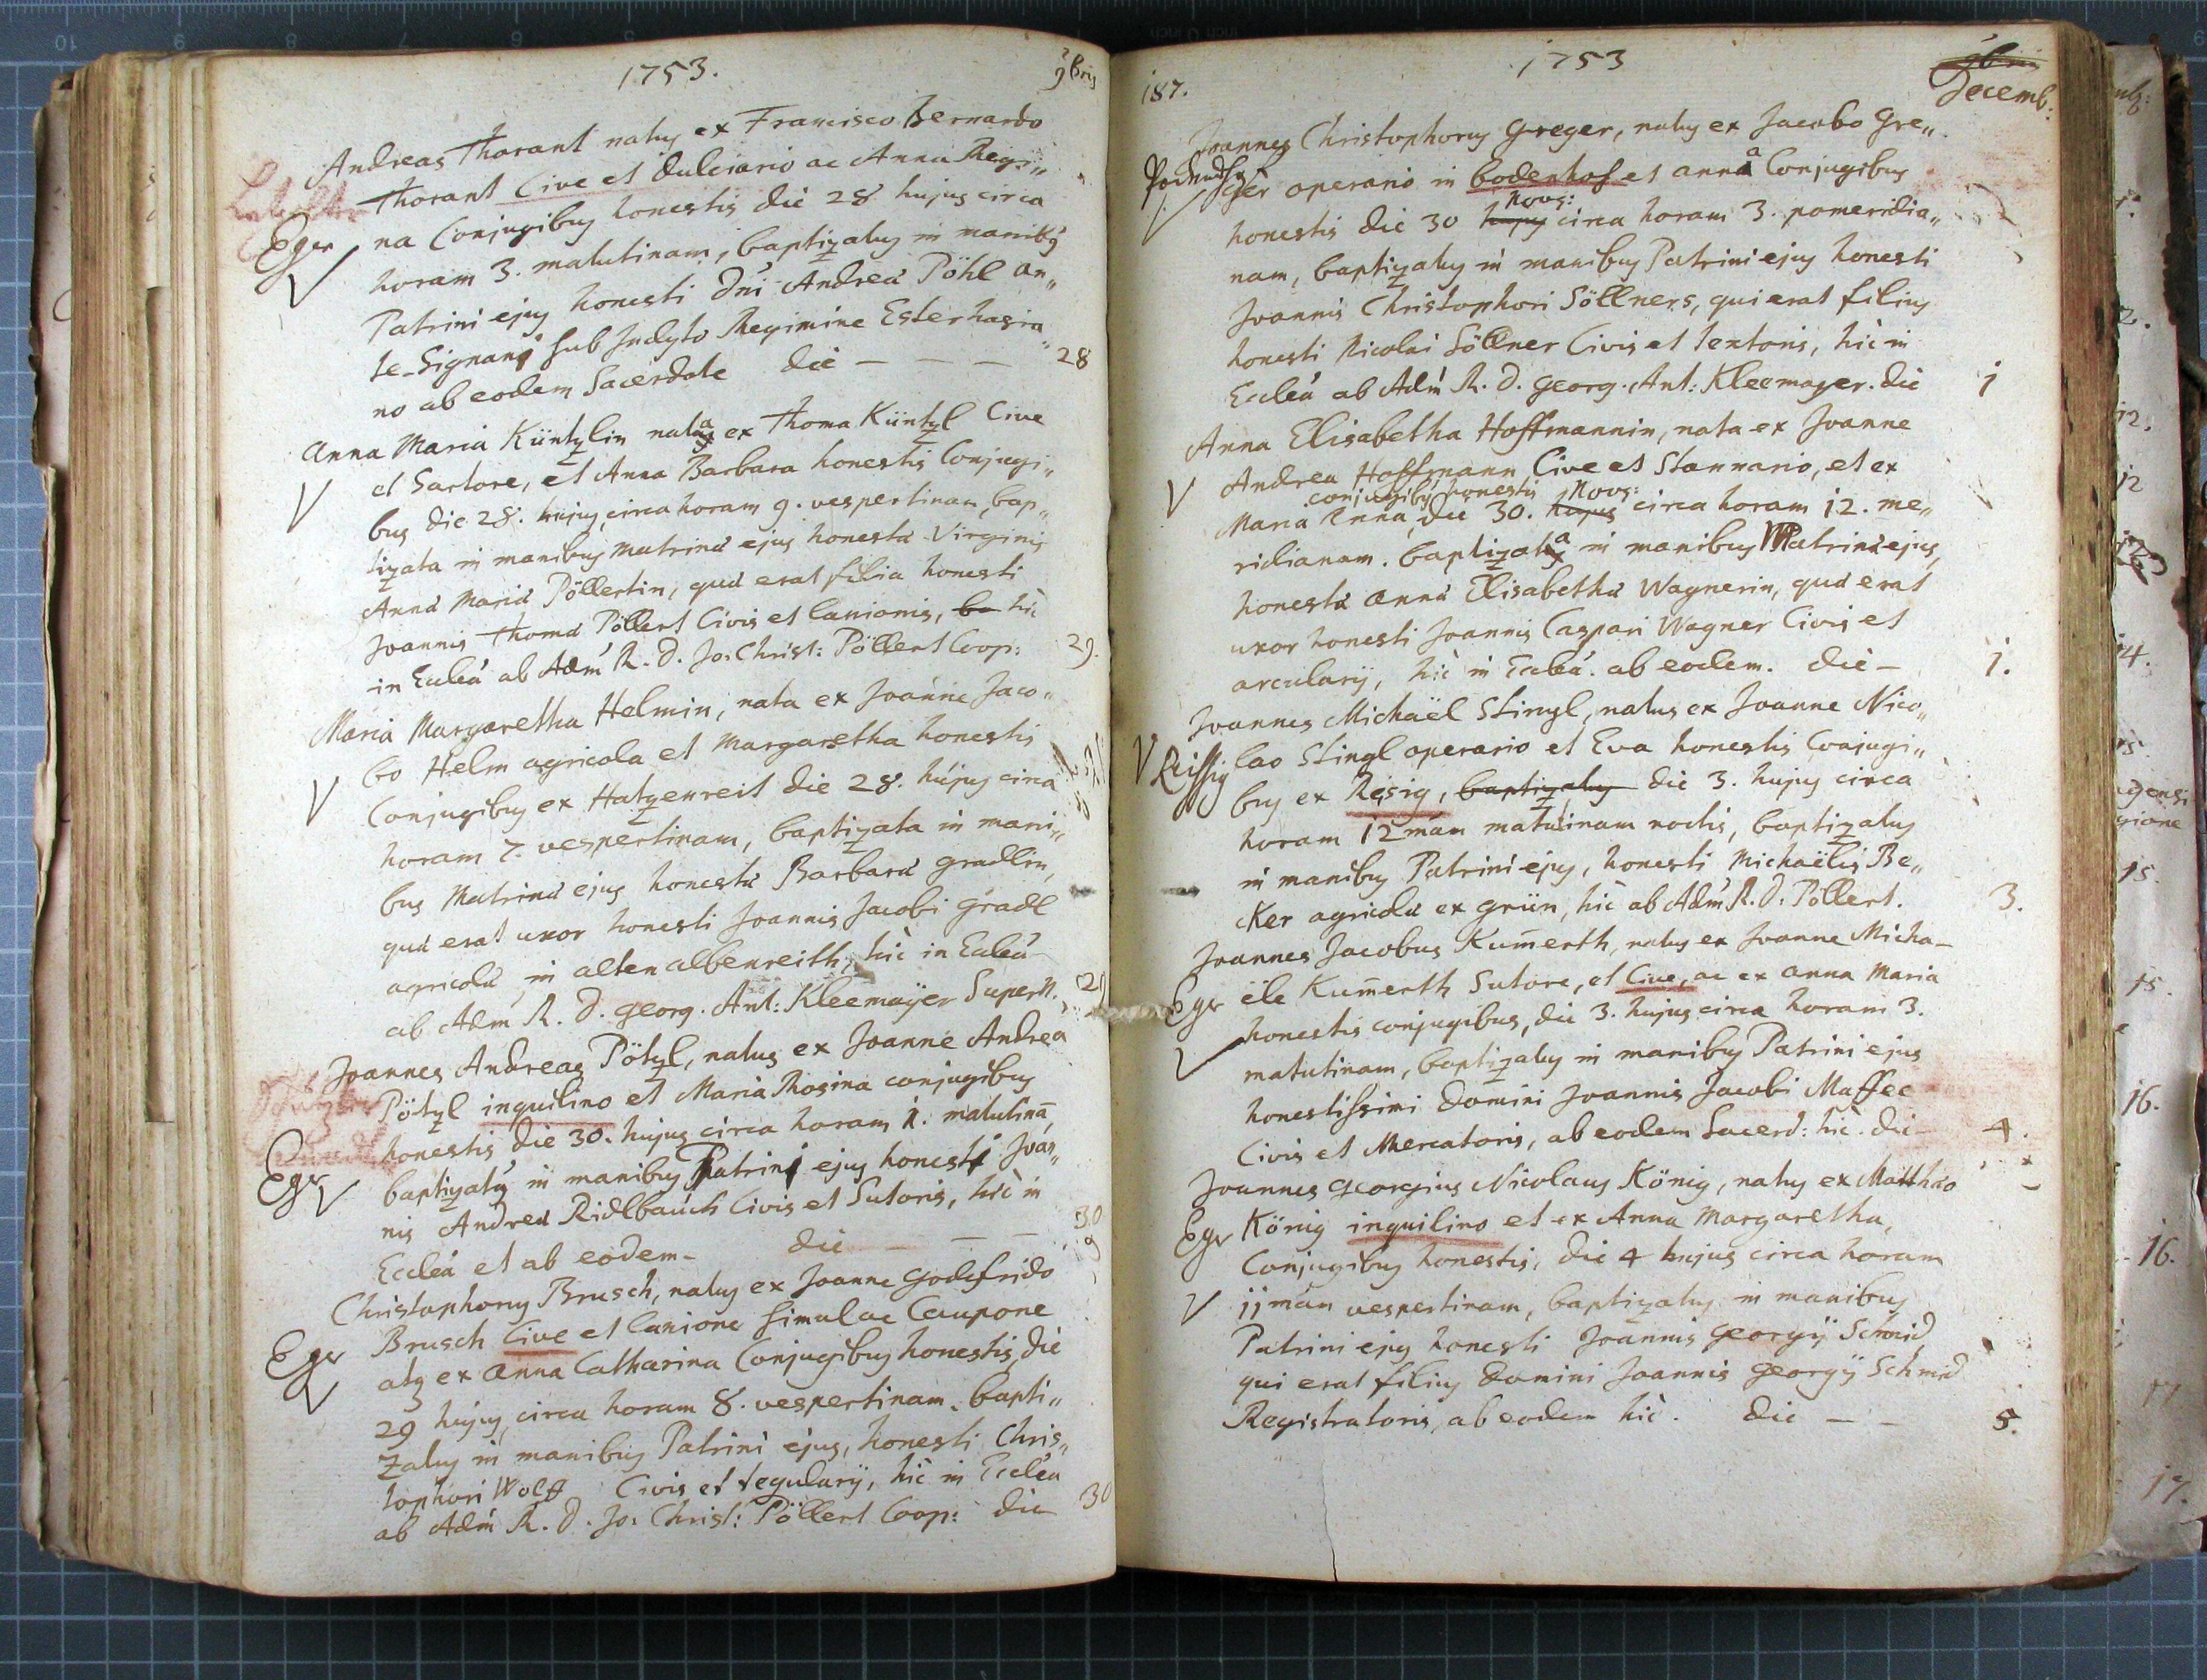 1753.
9bris
Andreas Thorant natus ex Francisco Bernardo
Thorant Cive et Dulciario ac Anna Regi„
Eger
na Conjugibus honestis die 28 hujus circa
horam 3. matutinam, baptizatus in manibus
Patrini ejus honesti Dni Andreæ Pöhl an„
te-Signani sub Inclyto Regimine Esterhasia„
no ab eodem Sacerdote die — — — 28
Anna Maria Küntzlin nata ex Thoma Küntzl Cive
et Sartore, et Anna Barbara honestis Conjugi„
bus die 28. hujus circa horam 9. vespertinam, bap„
tizata in manibus matrinæ ejus honestæ Virginis
Annæ Mariæ Pöllertin, quæ erat filia honesti
Joannis Thomæ Pöllert Civis et lanionis, ba hic
in Eccleâ ab Adm R. D. Jo: Christ: Pöllert Coop: 29.
Maria Margaretha Helmin, nata ex Joanne Jaco„
bo Helm agricola et Margaretha honestis
Conjugibus ex Hatzenreit die 28. hujus circa
horam 7. vespertinam, baptizata in mani„
bus Matrinæ ejus honestæ Barbaræ Gradlin,
quæ erat uxor honesti Joannis Jacobi Gradl
agricolæ in altenalbenreith, hic in Eccleâ
ab Adm R. D. Georg. Ant: Kleemaÿer Supern. 29
Joannes Andreas Pötzl, natus ex Joanne Andrea
Pötzl inquilino et Maria Rosina conjugibus
honestis die 30. hujus circa horam 1. matutinā,
Eger
baptizatus in manibus Patrini ejus honesti Joan„
nis Andreæ Ridlbauch Civis et Sutoris, hic in
Eccleâ et ab eodem — die — — — 30
Christophorus Brusch, natus ex Joanne Godefrido
Brusch Cive et lanione simul ac Caupone
Eger
atq ex Anna Catharina Conjugibus honestis, die
29 hujus, circa horam 8. vespertinam. bapti„
zatus in manibus Patrini ejus, honesti Chris„
tophori Wolff Civis et tegularÿ, hic in Eccleâ
ab Adm R. D. Jo: Christ: Pöllert Coop: die 30
187.
1753
9bris
Decemb:
Joannes Christophorus Greger, natus ex Jacobo Gre„
ger operario in Bodenhof et anna Conjugibus
honestis die 30 hujus Novs: circa horam 3. pomeridia„
nam, baptizatus in manibus Patrini ejus honesti
Joannis Christophori Söllners, qui erat filius
honesti Nicolai Söllner Civis et Textoris, hic in
Eccleâ ab Adm R. D. Georg. Ant: Kleemayer. die 1
Anna Elisabetha Hoffmannin, nata ex Joanne
Andrea Hoffmann Cive et Stannario, et ex
conjugibus honestis Novs:
Maria Anna, die 30. hujus circa horam 12. me„
ridianam. baptizata in manibus Matrinæ ejus,
honestæ Annæ Elisabethæ Wagnerin, quæ erat
uxor honesti Joannis Caspari Wagner Civis et
arcularÿ, hic in Eccleâ. ab eodem. die — 1.
Joannes Michaël Stingl, natus ex Joanne Nico„
lao Stingl operario et Eva honestis Conjugi„
Reissig
bus ex Resig, baptizatus die 3. hujus circa
horam 12mam matutinam noctis, baptizatus
in manibus Patrini ejus, honesti Michaëlis Be„
cker agricolæ ex grün, hic ab Adm R. D. Pöllert. 3.
Joannes Jacobus Kum̄erth, natus ex Joanne Micha—
ële Kum̄erth Sutore, et Cive, ac ex Anna Maria
Eger
honestis conjugibus, die 3. hujus circa horam 3.
matutinam, baptizatus in manibus Patrini ejus
honestissimi Domini Joannis Jacobi Maffee
Civis et Mercatoris, ab eodem Sacerd: hic. die — 4.
Joannes Georgius Nicolaus König, natus ex Matthæo
Eger
König inquilino et ex Anna Margaretha,
Conjugibus honestis, die 4 hujus circa horam
11mam vespertinam, baptizatus in manibus
Patrini ejus honesti Joannis Georgÿ Schmid
qui erat filius Domini Joannis Georgÿ Schmid
Registratoris, ab eodem hic. die — — 5.